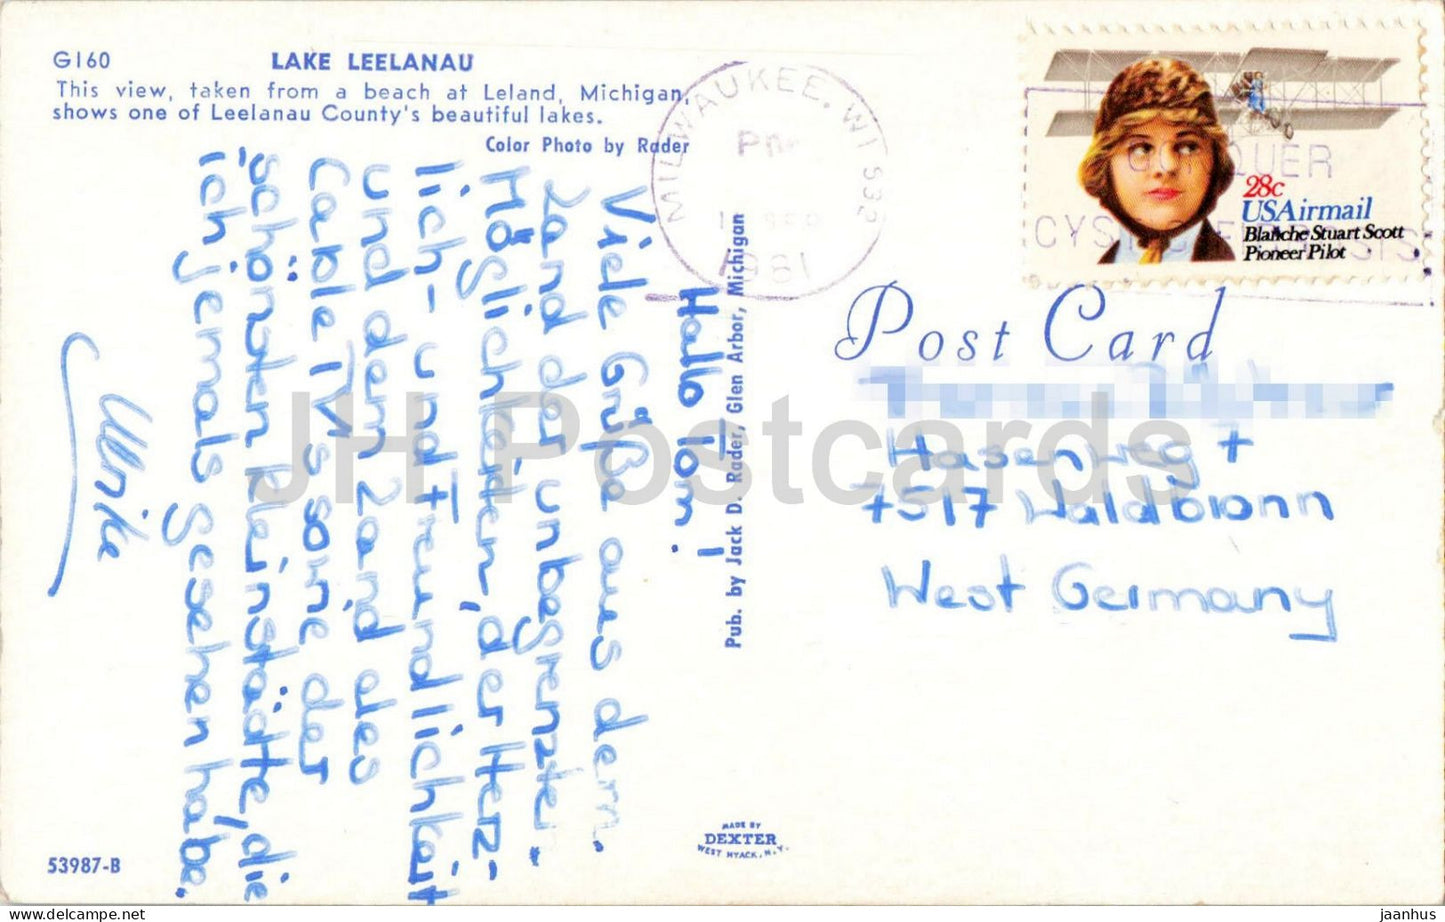 G160
LAKE LEELANAU
This view, taken from a beach at Leland, Michigan,
shows one of Leelanau County's beautiful lakes.
Color Photo by Rader
Hallo Tom!
Viele Grüße aus dem
Land der unbegrenzten
Möglichkeiten, der Herz-
lich- und Freundlichkeit
und dem Land des
Cable TV's sowie der
schönsten Kleinstädte, die
ich jemals gesehen habe.
Ulrike
53987-B
Pub. by Jack D. Rader, Glen Arbor, Michigan
MADE BY
DEXTER
WEST NYACK, N.Y.
MILWAUKEE, WI 532
PM
SEP
1981
CONQUER
CYSTIC FIBROSIS
28c
USAirmail
Blanche Stuart Scott
Pioneer Pilot
Post Card
Hasenweg 7
7517 Waldbronn
West Germany
JH Postcards
delcampe.net
jaanhus